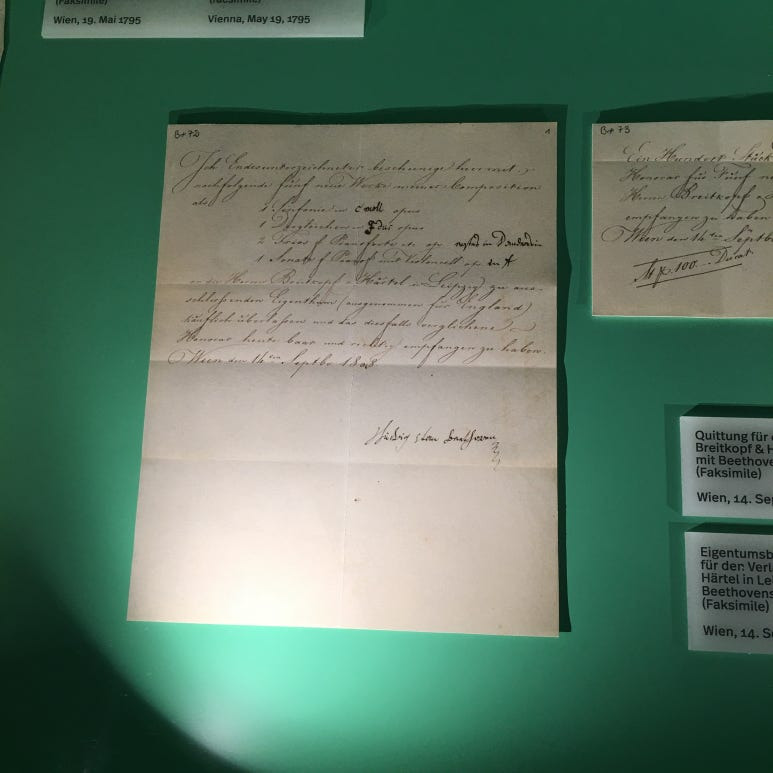 (Faksimile)
(facsimile)
Wien, 19. Mai 1795
Vienna, May 19, 1795
B+72
1
Ich Endesunterzeichneter bescheinige hiermit
nachfolgende fünf neue Werke meiner Composition
als
1 Sinfonie in c moll opus
1 Dergleichen in F dur opus
2 Trios f. Pianoforte etc op
1 Sonate f Pianof mit Violoncell op in A
an die Herrn Breitkopf u Härtel in Leipzig zu aus
schliessenden Eigenthum (ausgenommen für England)
käuflich überlassen und das diesfalls verglichene
Honorar heute baar und richtig empfangen zu haben.
Wien den 14ten Septbr 1808
Ludwig van Beethoven
B+73
Ein Hundert Stück
Honorar für Fünf
Herrn Breitkopf
empfangen zu haben
Wien den 14ten Septb
100
Quittung für
Breitkopf &
mit
(Faksimile)
Wien, 14.
für der
Härtel in
(Faksimile)
Wien, 14.